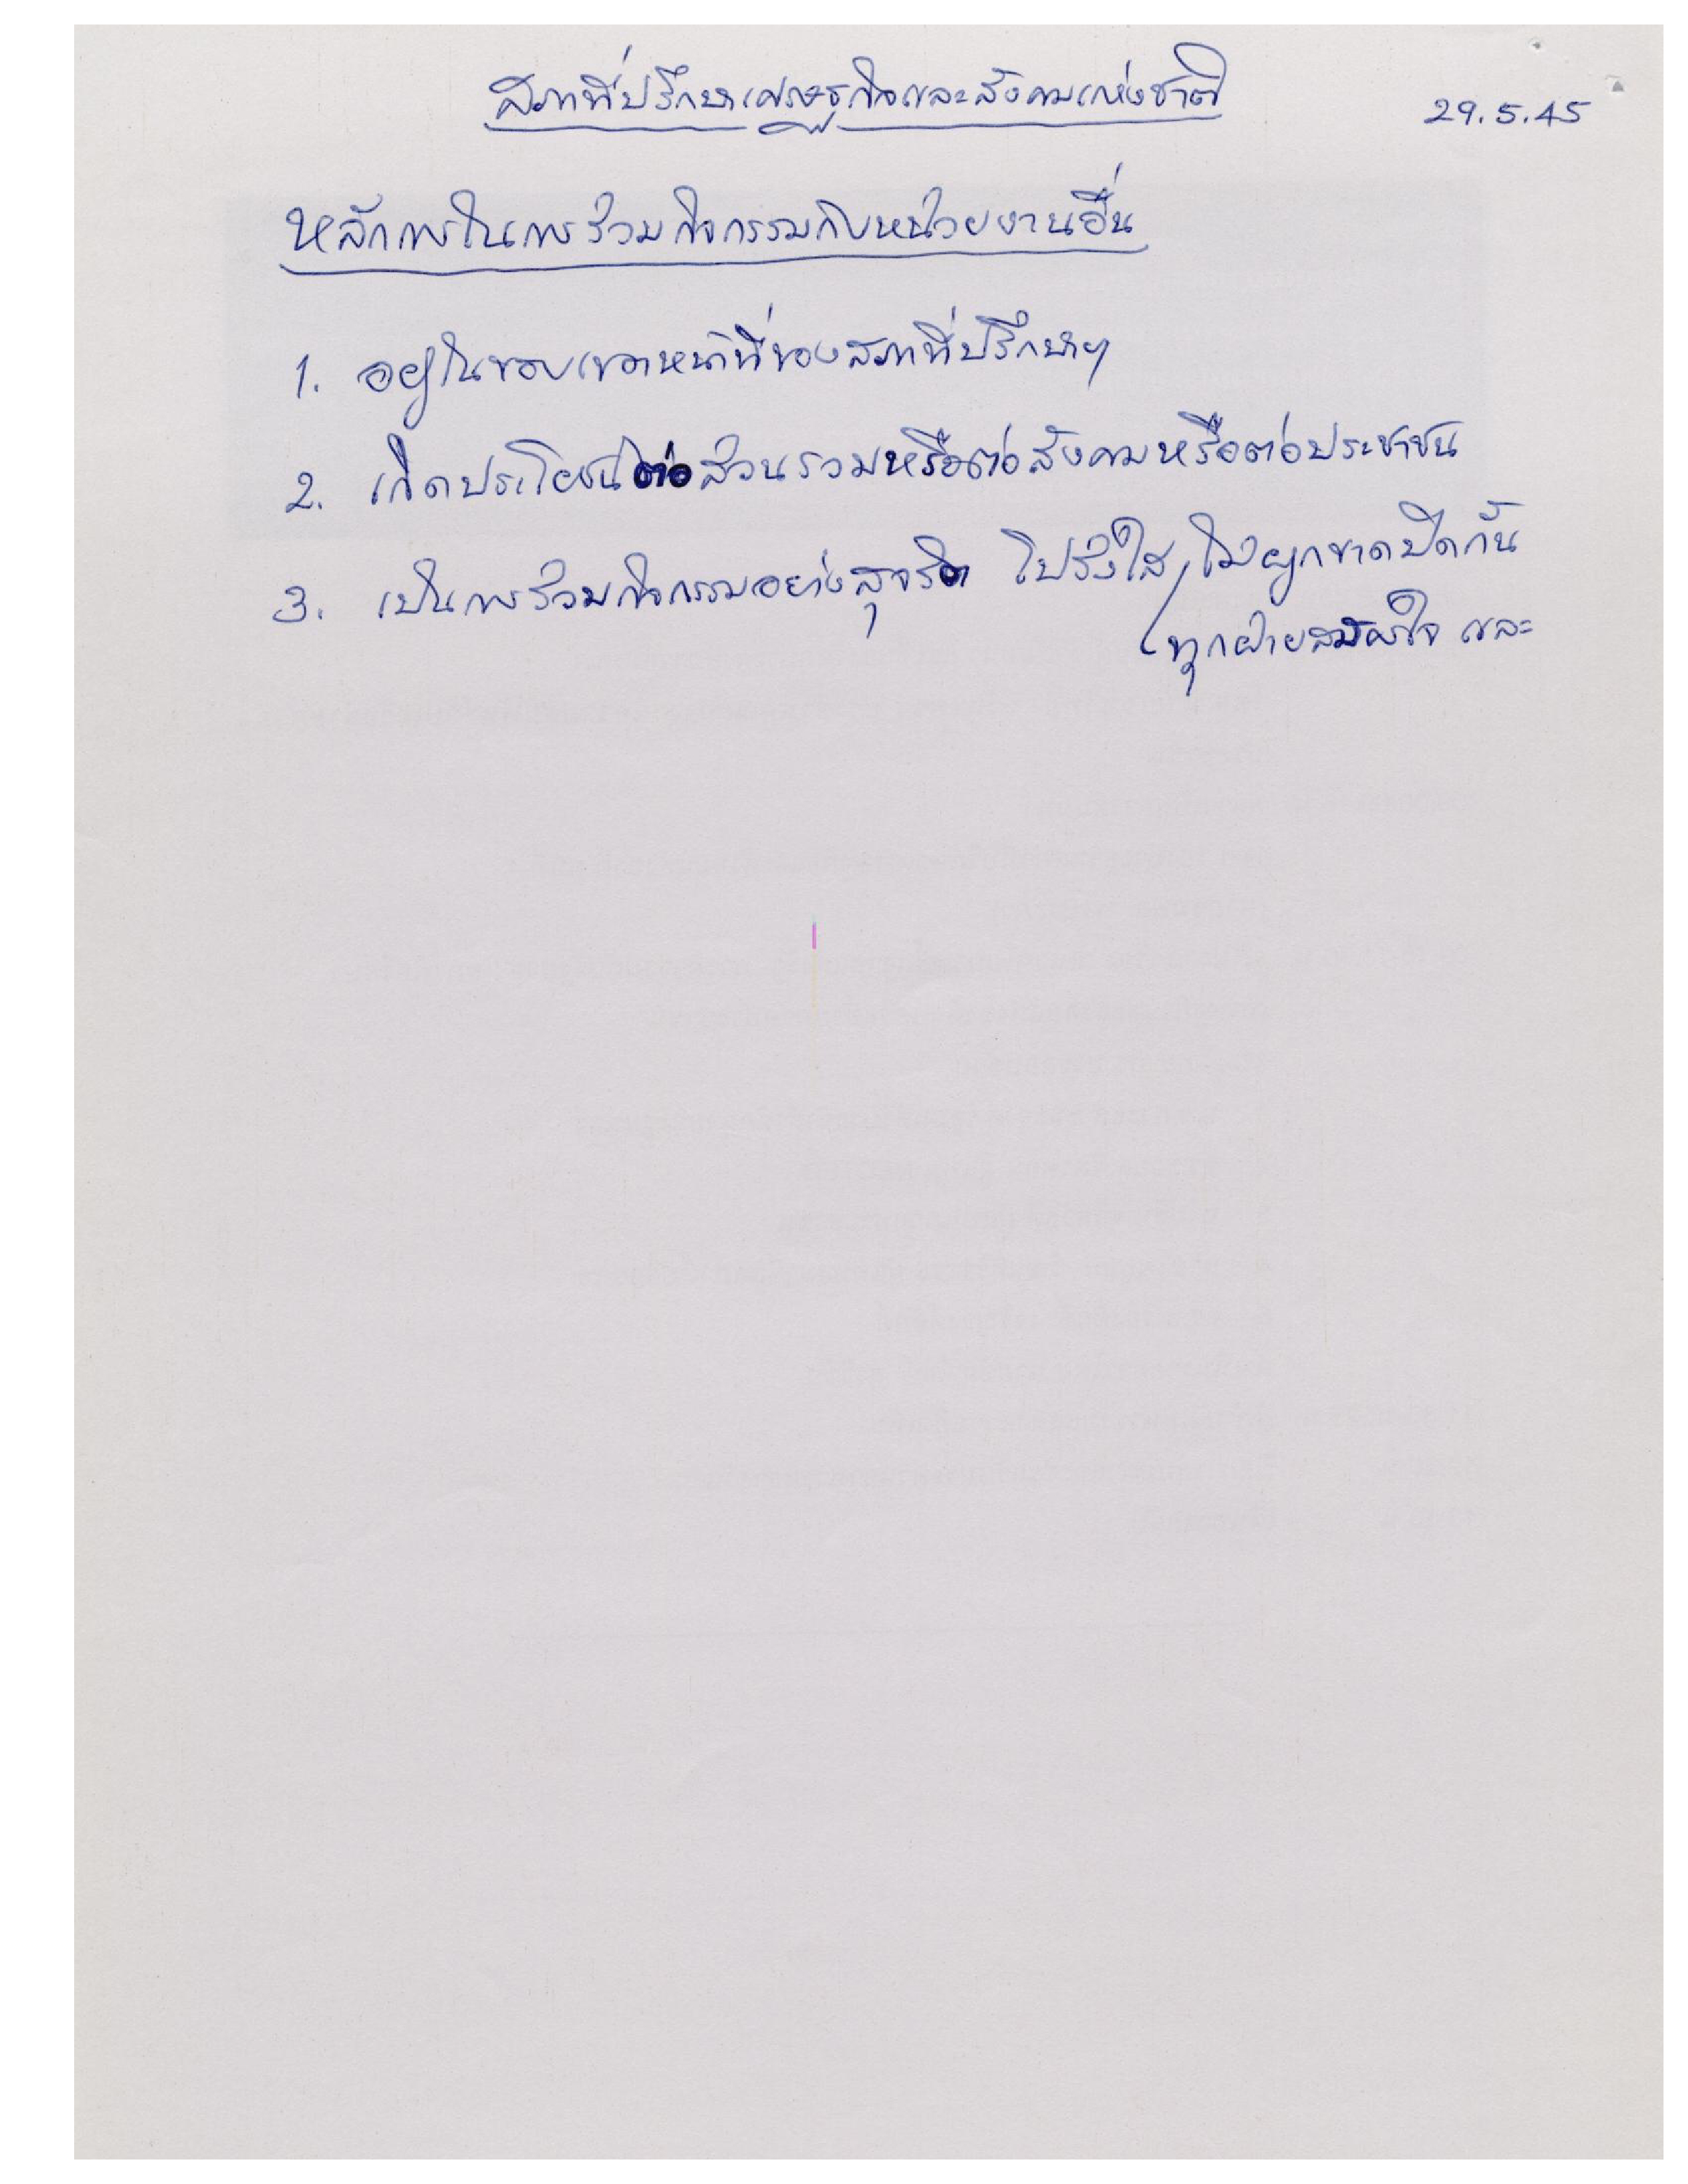 สภาที่ปรึกษาเศรษฐกิจและสังคมแห่งชาติ
29.5.45
หลักการในการร่วมกิจกรรมกับหน่วยงานอื่น
1. อยู่ในขอบเขตหน้าที่ของสภาที่ปรึกษาฯ
2. เกิดประโยชน์ต่อส่วนรวมหรือต่อสังคมหรือต่อประชาชน
3. เป็นการร่วมกิจกรรมอย่างสุจริต โปร่งใส ไม่ผูกขาดปิดกั้น
ทุกฝ่ายสมัครใจ และ